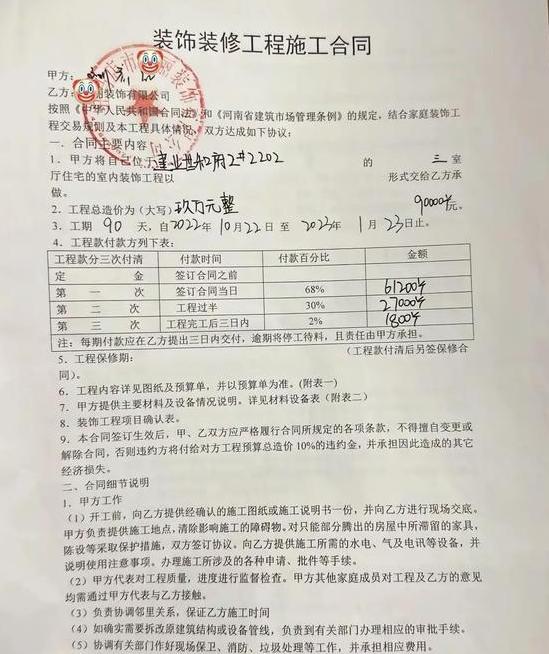 装饰装修工程施工合同
甲方：
乙方：装饰有限公司
按照《中华人民共和国合同法》和《河南省建筑市场管理条例》的规定，结合家庭装饰工
程交易规则及本工程具体情况，双方达成如下协议：
一、合同主要内容
1．甲方将自己位于 建业世和府2#2202 的 三 室
厅住宅的室内装饰工程以 形式交给乙方承
做。
2．工程总造价为（大写）玖万元整 90000元。
3．工期 90 天，自2022年10月22日 至 2023年 1月 23日止。
4．工程款付款方列下表：
工程款分三次付清 付款时间 付款百分比 金额
定 金 签订合同之前
第 一 次 签订合同当日 68% 61200
第 二 次 工程过半 30% 27000
第 三 次 工程完工后三日内 2% 1800
注：每期付款应在乙方提出三日内交付，逾期将停工待料，且责任由甲方承担。
5．工程保修期： （工程款付清后另签保修合
同）。
6．工程内容详见图纸及预算单，并以预算单为准。（附表一）
7．甲方提供主要材料及设备情况说明。详见材料设备表（附表二）
8．装饰工程项目确认表。
9．本合同签订生效后，甲、乙双方应严格履行合同所规定的各项条款，不得擅自变更或
解除合同，否则违约方将付给对方工程预算总造价10%的违约金，并承担因此造成的其它
经济损失。
二、合同细节说明
1．甲方工作
（1）开工前，向乙方提供经确认的施工图纸或施工说明书一份，并向乙方进行现场交底。
甲方负责提供施工地点，清除影响施工的障碍物。对只能部分腾出的房屋中所滞留的家具，
陈设等采取保护措施，双方签订协议。向乙方提供施工所需的水电、气及电讯等设备，并
说明使用注意事项。办理施工所涉及的各种申请、批件等手续。
（2）甲方代表对工程质量，进度进行监督检查。甲方其他家庭成员对工程及乙方的意见
均需通过甲方代表与乙方接触。
（3）负责协调邻里关系，保证乙方施工时间
（4）如确实需要拆改原建筑结构或设备管线，负责到有关部门办理相应的审批手续。
（5）协调有关部门作好现场保卫、消防、垃圾处理等工作，并承担相应费用。